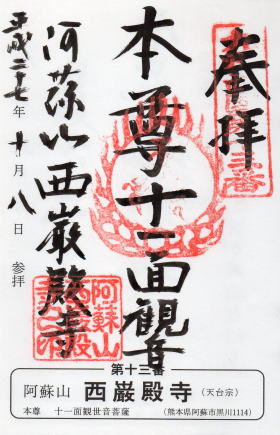 奉拝
本尊十一面観音
阿蘇山西巌殿寺
平成二十七年十月八日参拝
第十三番
阿蘇山 西巌殿寺 (天台宗)
本尊 十一面観世音菩薩 (熊本県阿蘇市黒川1114)